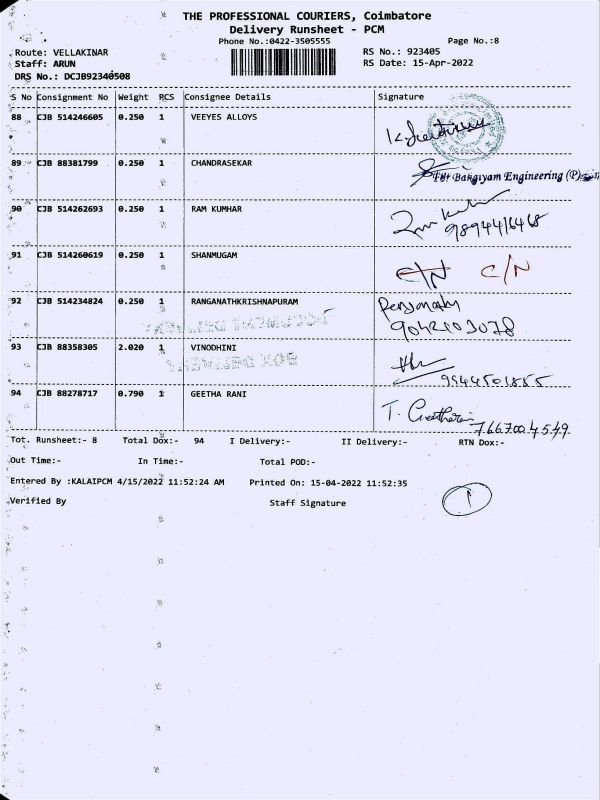 THE PROFESSIONAL COURIERS, Coimbatore
Delivery Runsheet - PCM
Phone No.:0422-3505555 Page No.:8
Route: VELLAKINAR RS No.: 923405
Staff: ARUN RS Date: 15-Apr-2022
DRS No.: DCJB92340508
S No Consignment No Weight PCS Consignee Details Signature
88 CJB 514246605 0.250 1 VEEYES ALLOYS
89 CJB 88381799 0.250 1 CHANDRASEKAR
Bakgiyam Engineering (P)
90 CJB 514262693 0.250 1 RAM KUMHAR
9894416468
91 CJB 514260619 0.250 1 SHANMUGAM C/N C/N
92 CJB 514234824 0.250 1 RANGANATHKRISHNAPURAM
9042103078
93 CJB 88358305 2.020 1 VINODHINI
94 CJB 88278717 0.790 1 GEETHA RANI T.
7667004549
Tot. Runsheet:- 8 Total Dox:- 94 I Delivery:- II Delivery:- RTN Dox:-
Out Time:- In Time:- Total POD:-
Entered By :KALAIPCM 4/15/2022 11:52:24 AM Printed On: 15-04-2022 11:52:35
Verified By Staff Signature
1